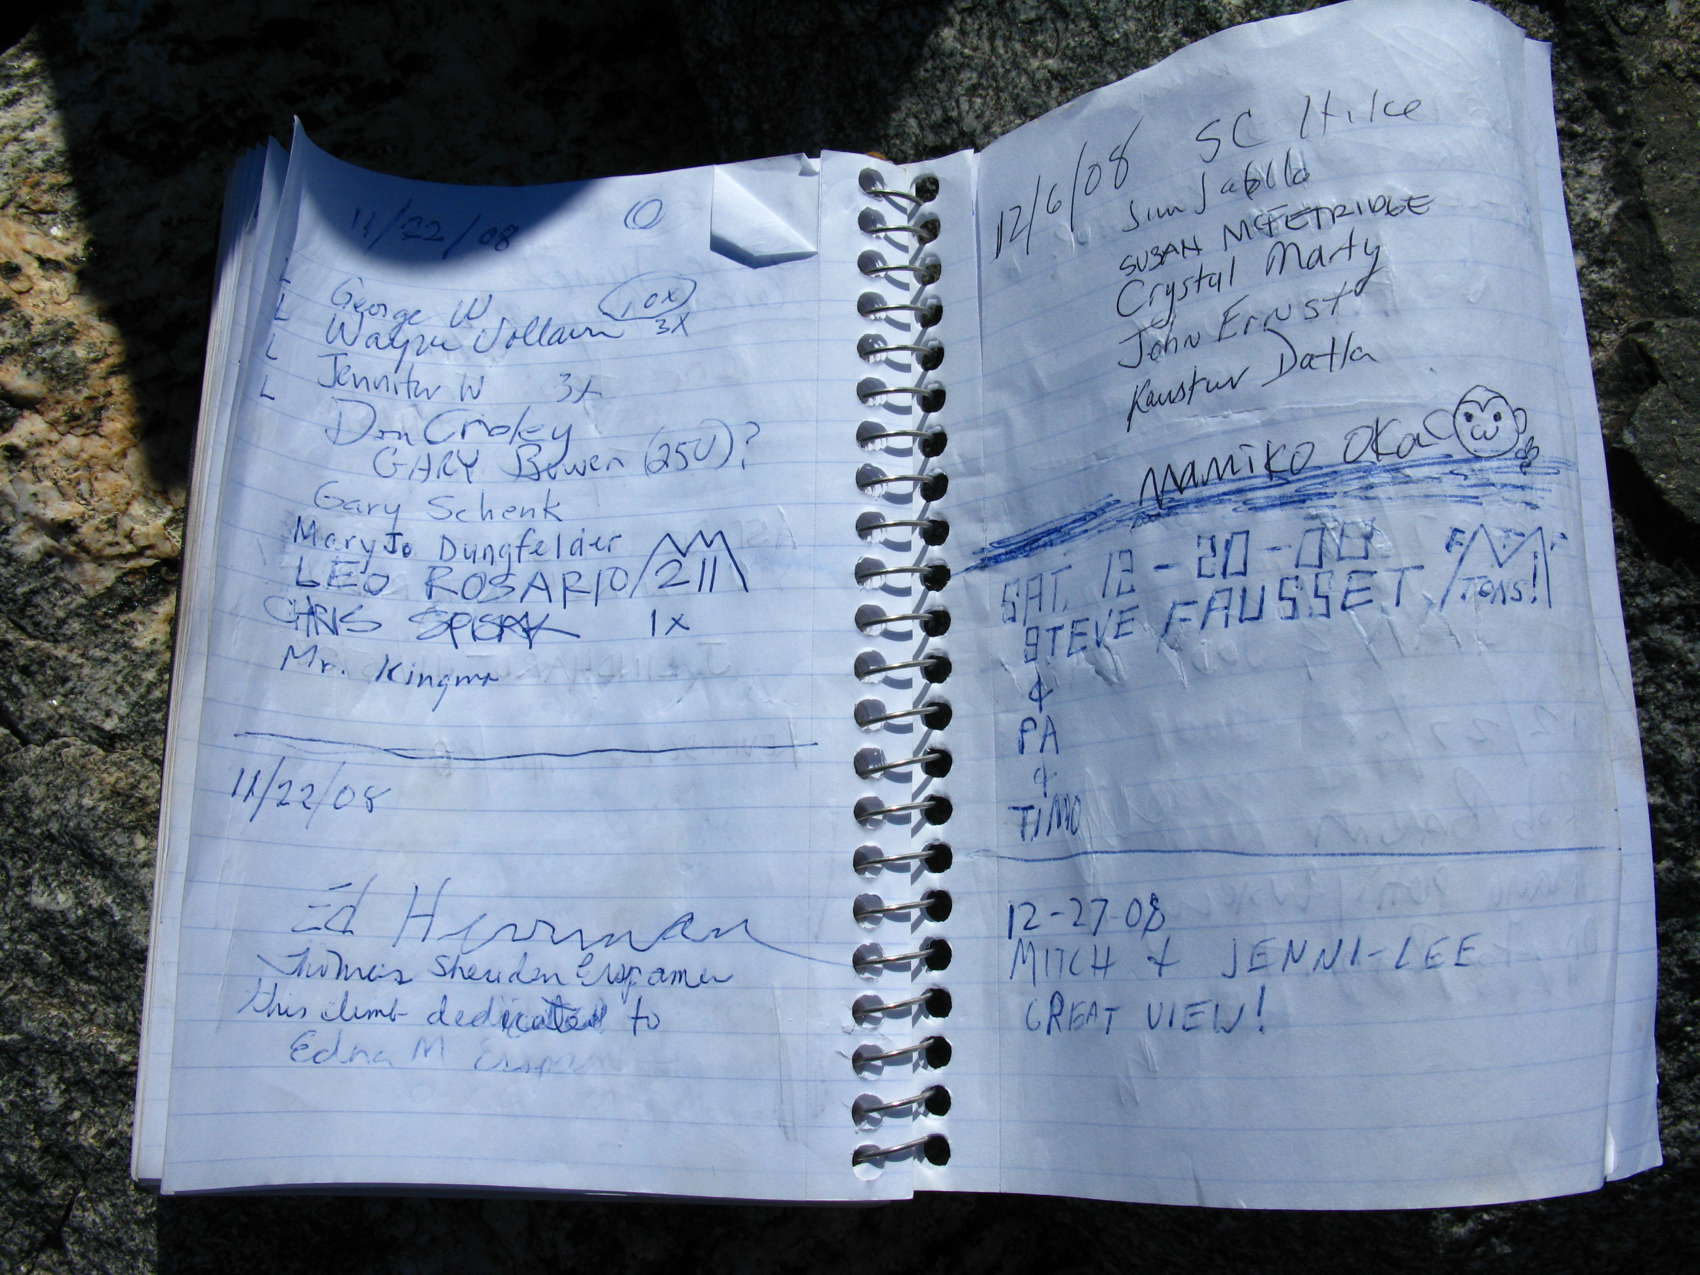 11/22/08
L George W 10x
L Wayne Vollaire 3x
L Jennifer W 3x
L Don Croley
GARY Bowen (25U)?
Gary Schenk
Mary Jo Dungfelder
LEO ROSARIO 211
CHRIS SPISAK 1x
Mr. Kingma
11/22/08
Ed Herrman
Thomas Sheridan Erspamer
this climb dedicated to
Edna M
12/6/08 SC Hike
SUSAN MCFETRIDGE
Crystal Marty
John Ernst
Datla
MAMIKO OKA
SAT. 12-20-08
STEVE FAUSSET TONS!
&
PA
&
TIMO
12-27-08
MITCH & JENNI-LEE
GREAT VIEW!